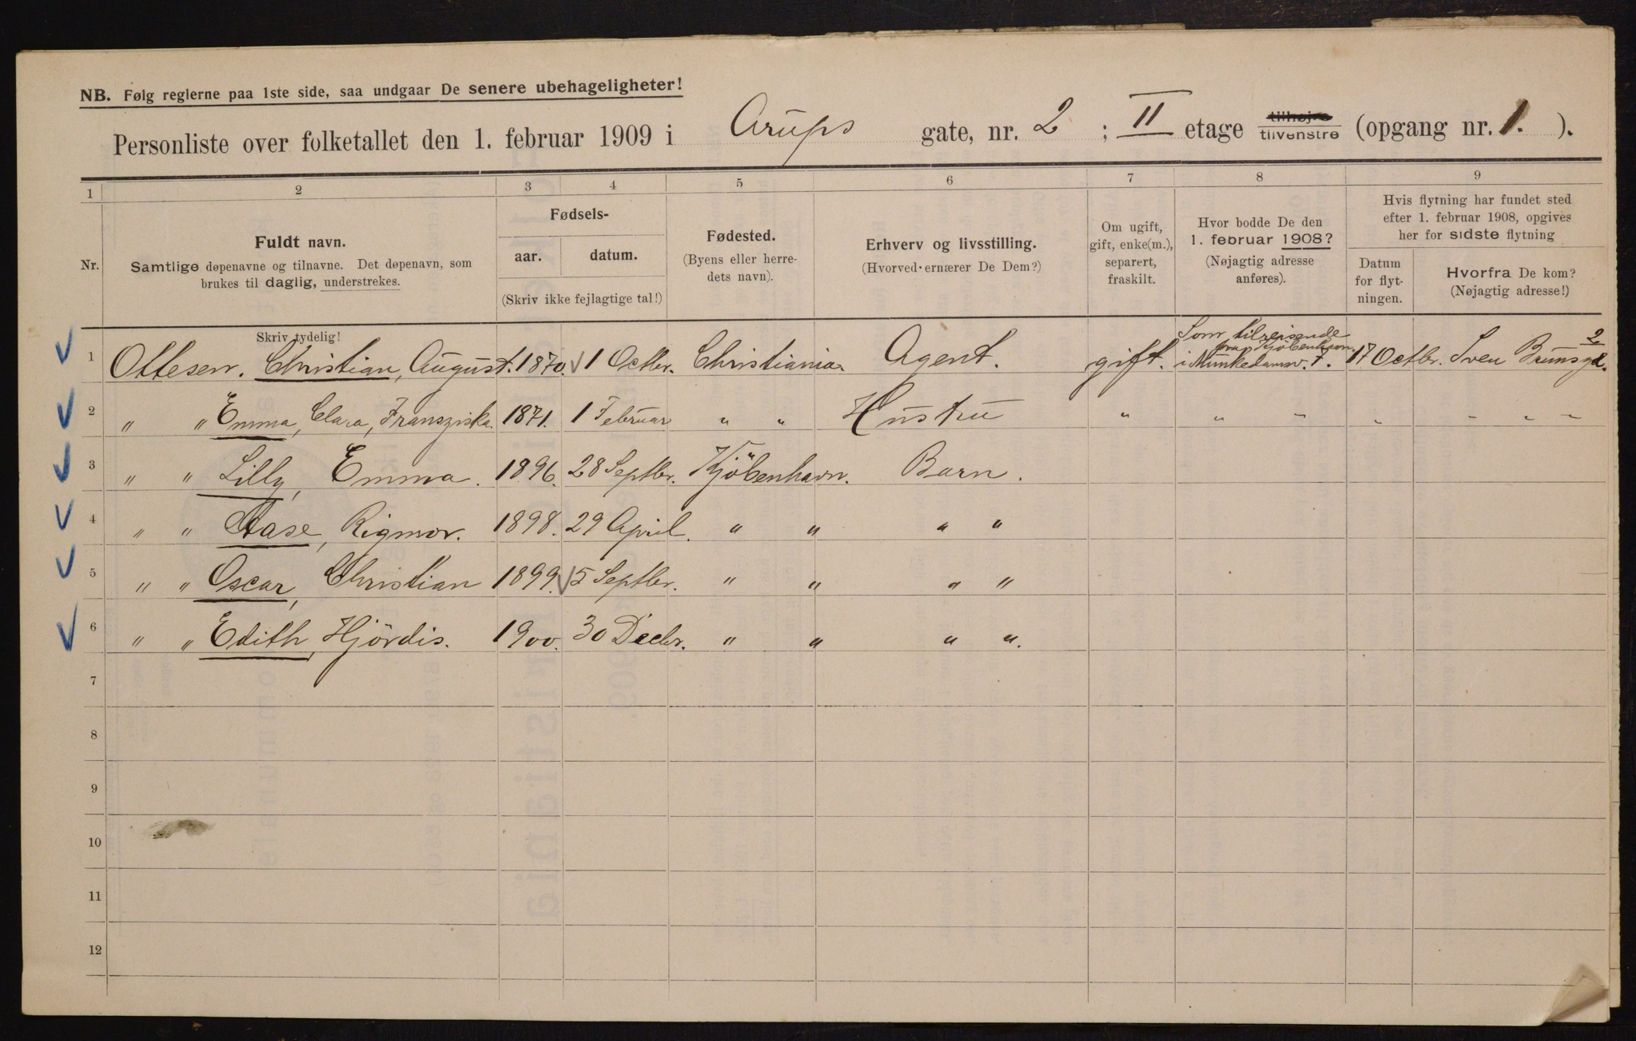 NB. Følg reglerne paa 1ste side, saa undgaar De senere ubehageligheter!
Personliste over folketallet den 1. februar 1909 i Arups gate, nr. 2 ; II etage tilhøjre tilvenstre (opgang nr. 1. ).
1 2 3 4 5 6 7 8 9
Nr.
Fuldt navn.
Samtlige døpenavne og tilnavne. Det døpenavn, som
brukes til daglig, understrekes.
Skriv tydelig!
Fødsels-
aar. datum.
(Skriv ikke fejlagtige tal!)
Fødested.
(Byens eller herre-
dets navn).
Erhverv og livsstilling.
(Hvorved ernærer De Dem?)
Om ugift,
gift, enke(m.),
separert,
fraskilt.
Hvor bodde De den
1. februar 1908?
(Nøjagtig adresse
anføres).
Hvis flytning har fundet sted
efter 1. februar 1908, opgives
her for sidste flytning
Datum
for flyt-
ningen.
Hvorfra De kom?
(Nøjagtig adresse!)
1 Ottesen. Christian, August. 1870. 1 Octbr. Christiania. Agent. gift. Som tilreisende fra Kjöbenhavn i Munkedamsv. 7. 17 Octbr. Sven Brunsgd. 2
2 " " Emma, Clara, Fransziska. 1871. 1 Februar " " Hustru " " " " " " "
3 " " Lilly, Emma. 1896. 28 Septbr. Kjöbenhavn. Barn.
4 " " Aase, Rigmor. 1898. 29 April. " " " "
5 " " Oscar, Christian 1899. 5 Septbr. " " " "
6 " " Edith, Hjördis. 1900. 30 Decbr. " " " ".
7
8
9
10
11
12